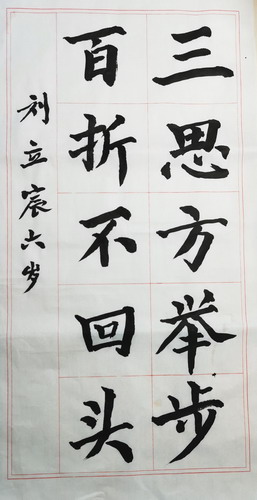 三思方举步
百折不回头
刘立宸六岁